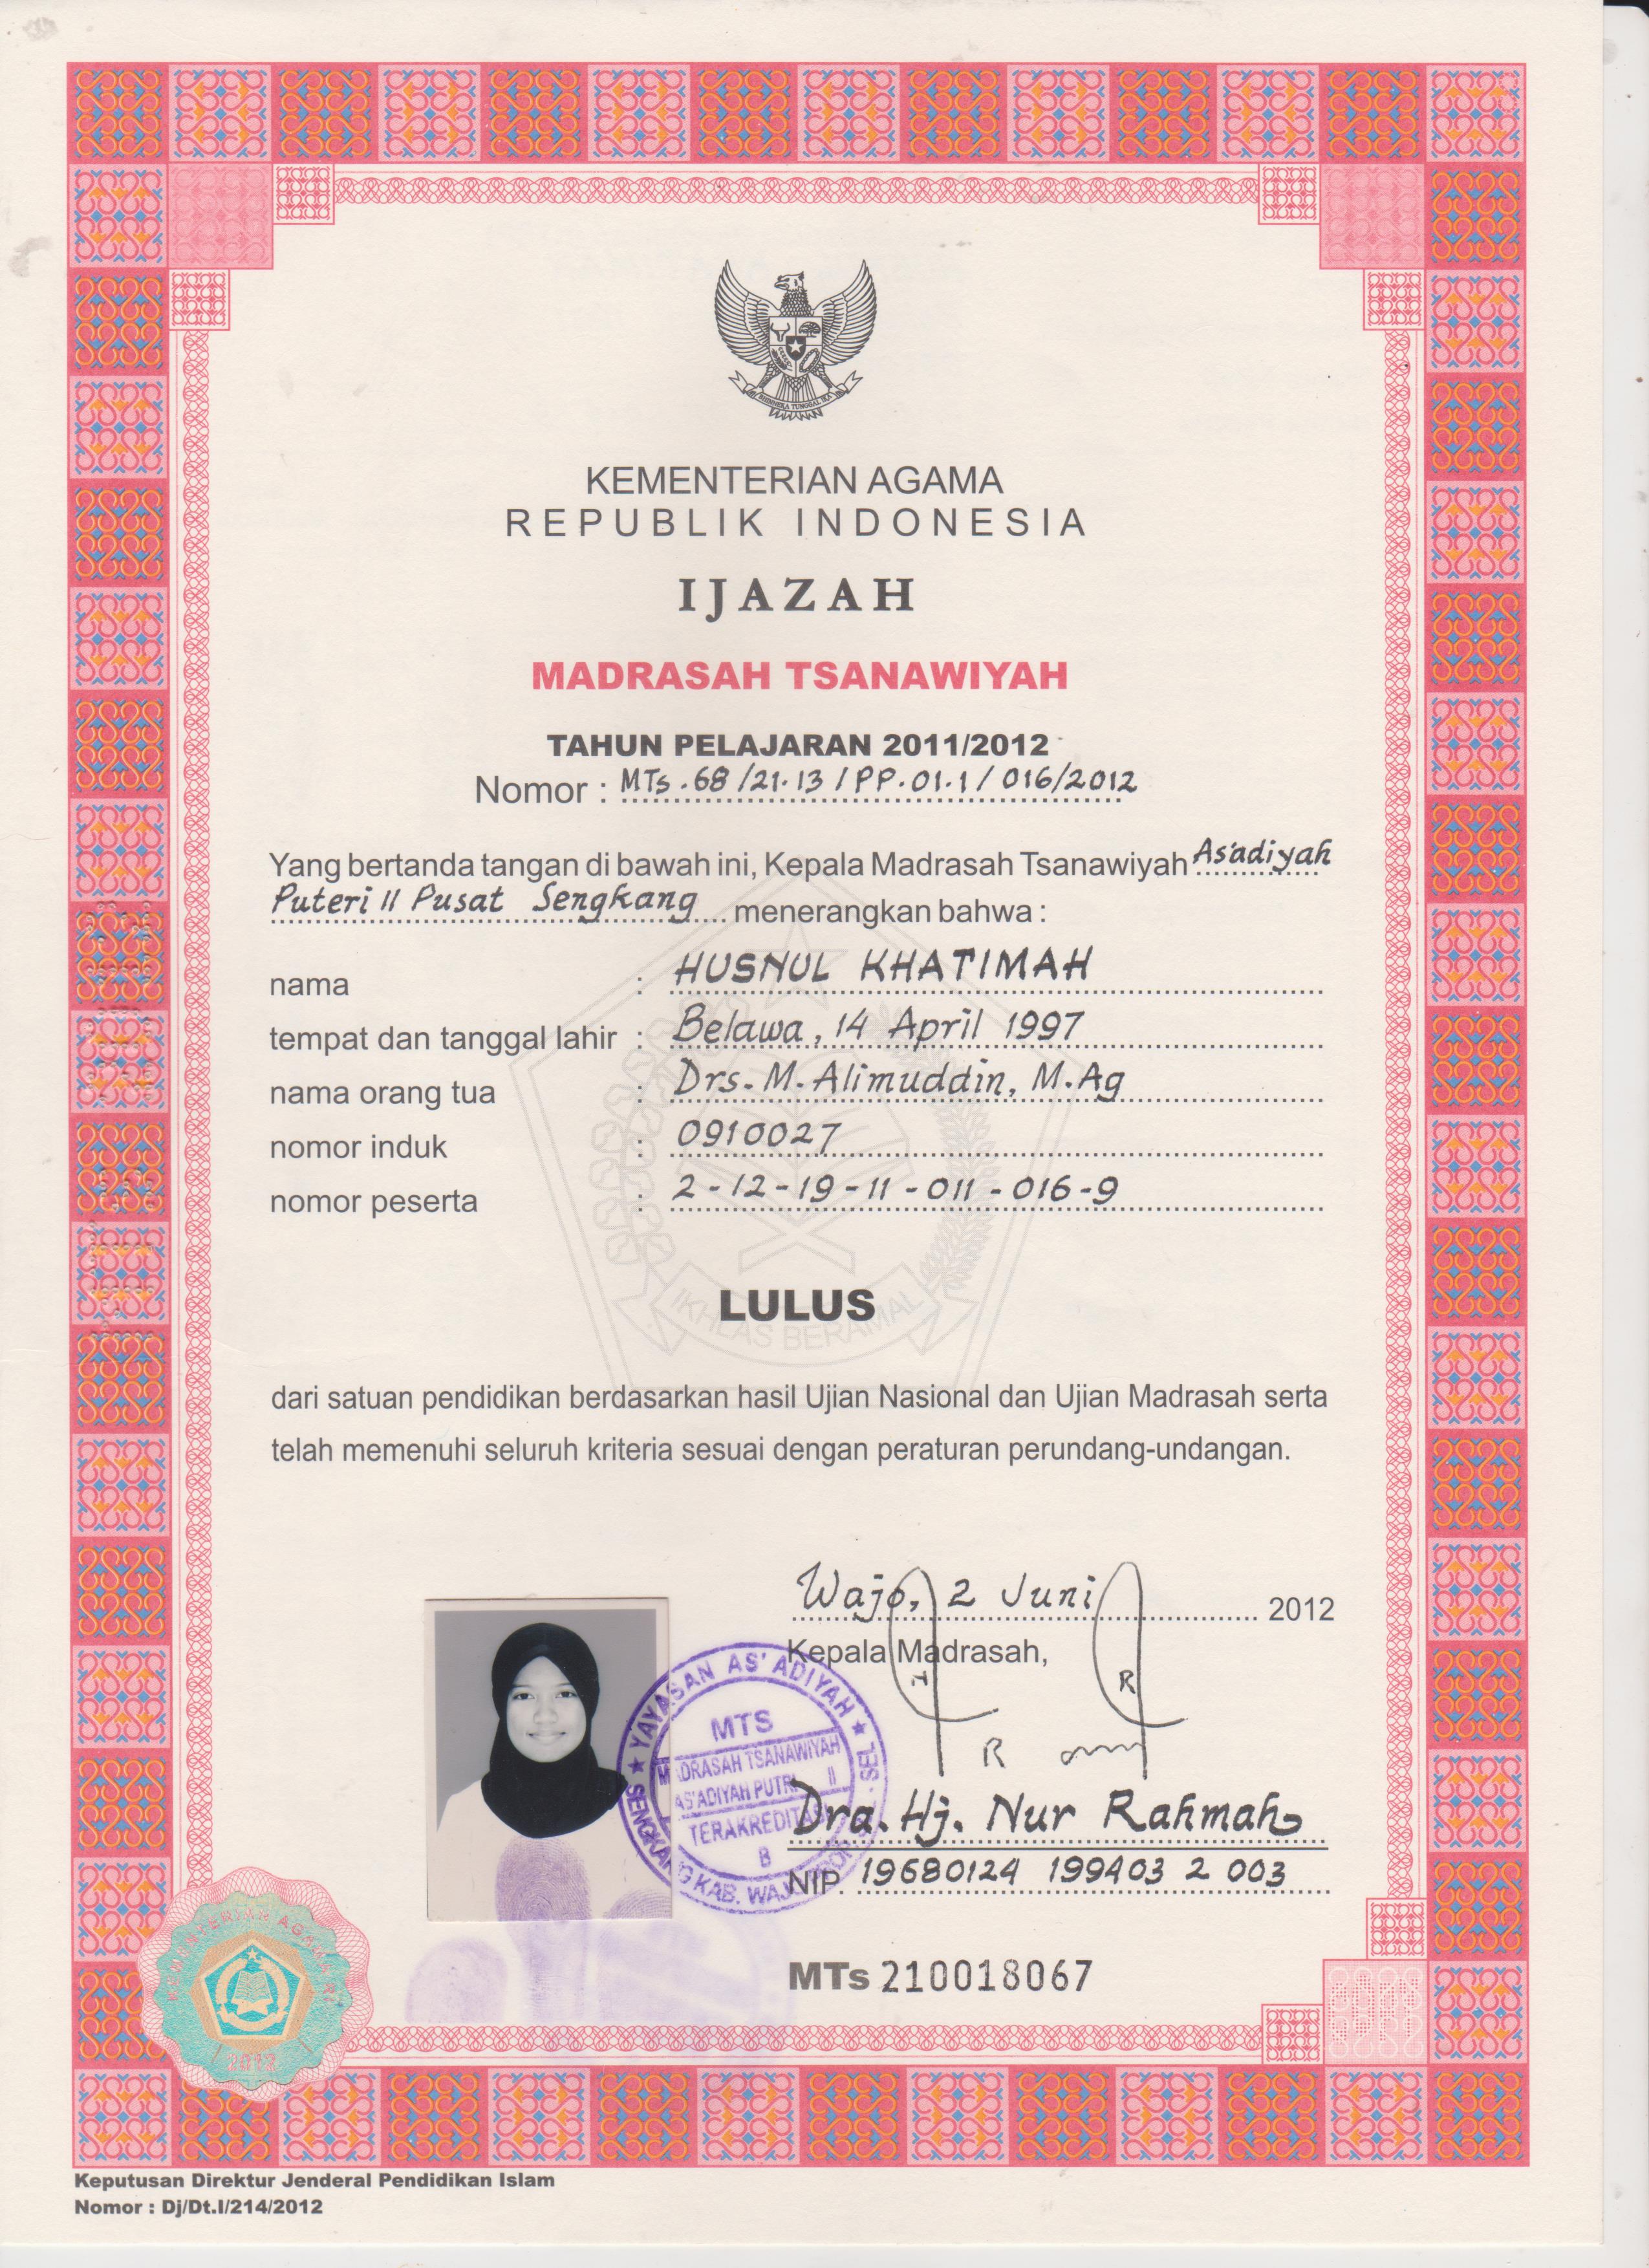 BHINNEKA TUNGGAL IKA
KEMENTERIAN AGAMA
REPUBLIK INDONESIA
IJAZAH
MADRASAH TSANAWIYAH
TAHUN PELAJARAN 2011/2012
Nomor : MTs.68/21.13/PP.01.1/016/2012
Yang bertanda tangan di bawah ini, Kepala Madrasah Tsanawiyah As'adiyah
Puteri II Pusat Sengkang menerangkan bahwa :
nama : HUSNUL KHATIMAH
tempat dan tanggal lahir : Belawa, 14 April 1997
nama orang tua : Drs. M. Alimuddin, M.Ag
nomor induk : 0910027
nomor peserta : 2-12-19-11-011-016-9
LULUS
IKHLAS BERAMAL
dari satuan pendidikan berdasarkan hasil Ujian Nasional dan Ujian Madrasah serta
telah memenuhi seluruh kriteria sesuai dengan peraturan perundang-undangan.
Wajo, 2 Juni 2012
Kepala Madrasah,
YAYASAN AS'ADIYAH
MTS
MADRASAH TSANAWIYAH
AS'ADIYAH PUTRI II
TERAKREDITASI
B
SENGKANG KAB. WAJO
SEL
Dra. Hj. Nur Rahmah
NIP. 19680124 199403 2 003
MTs 210018067
KEMENTERIAN AGAMA RI
2012
Keputusan Direktur Jenderal Pendidikan Islam
Nomor : Dj/Dt.I/214/2012